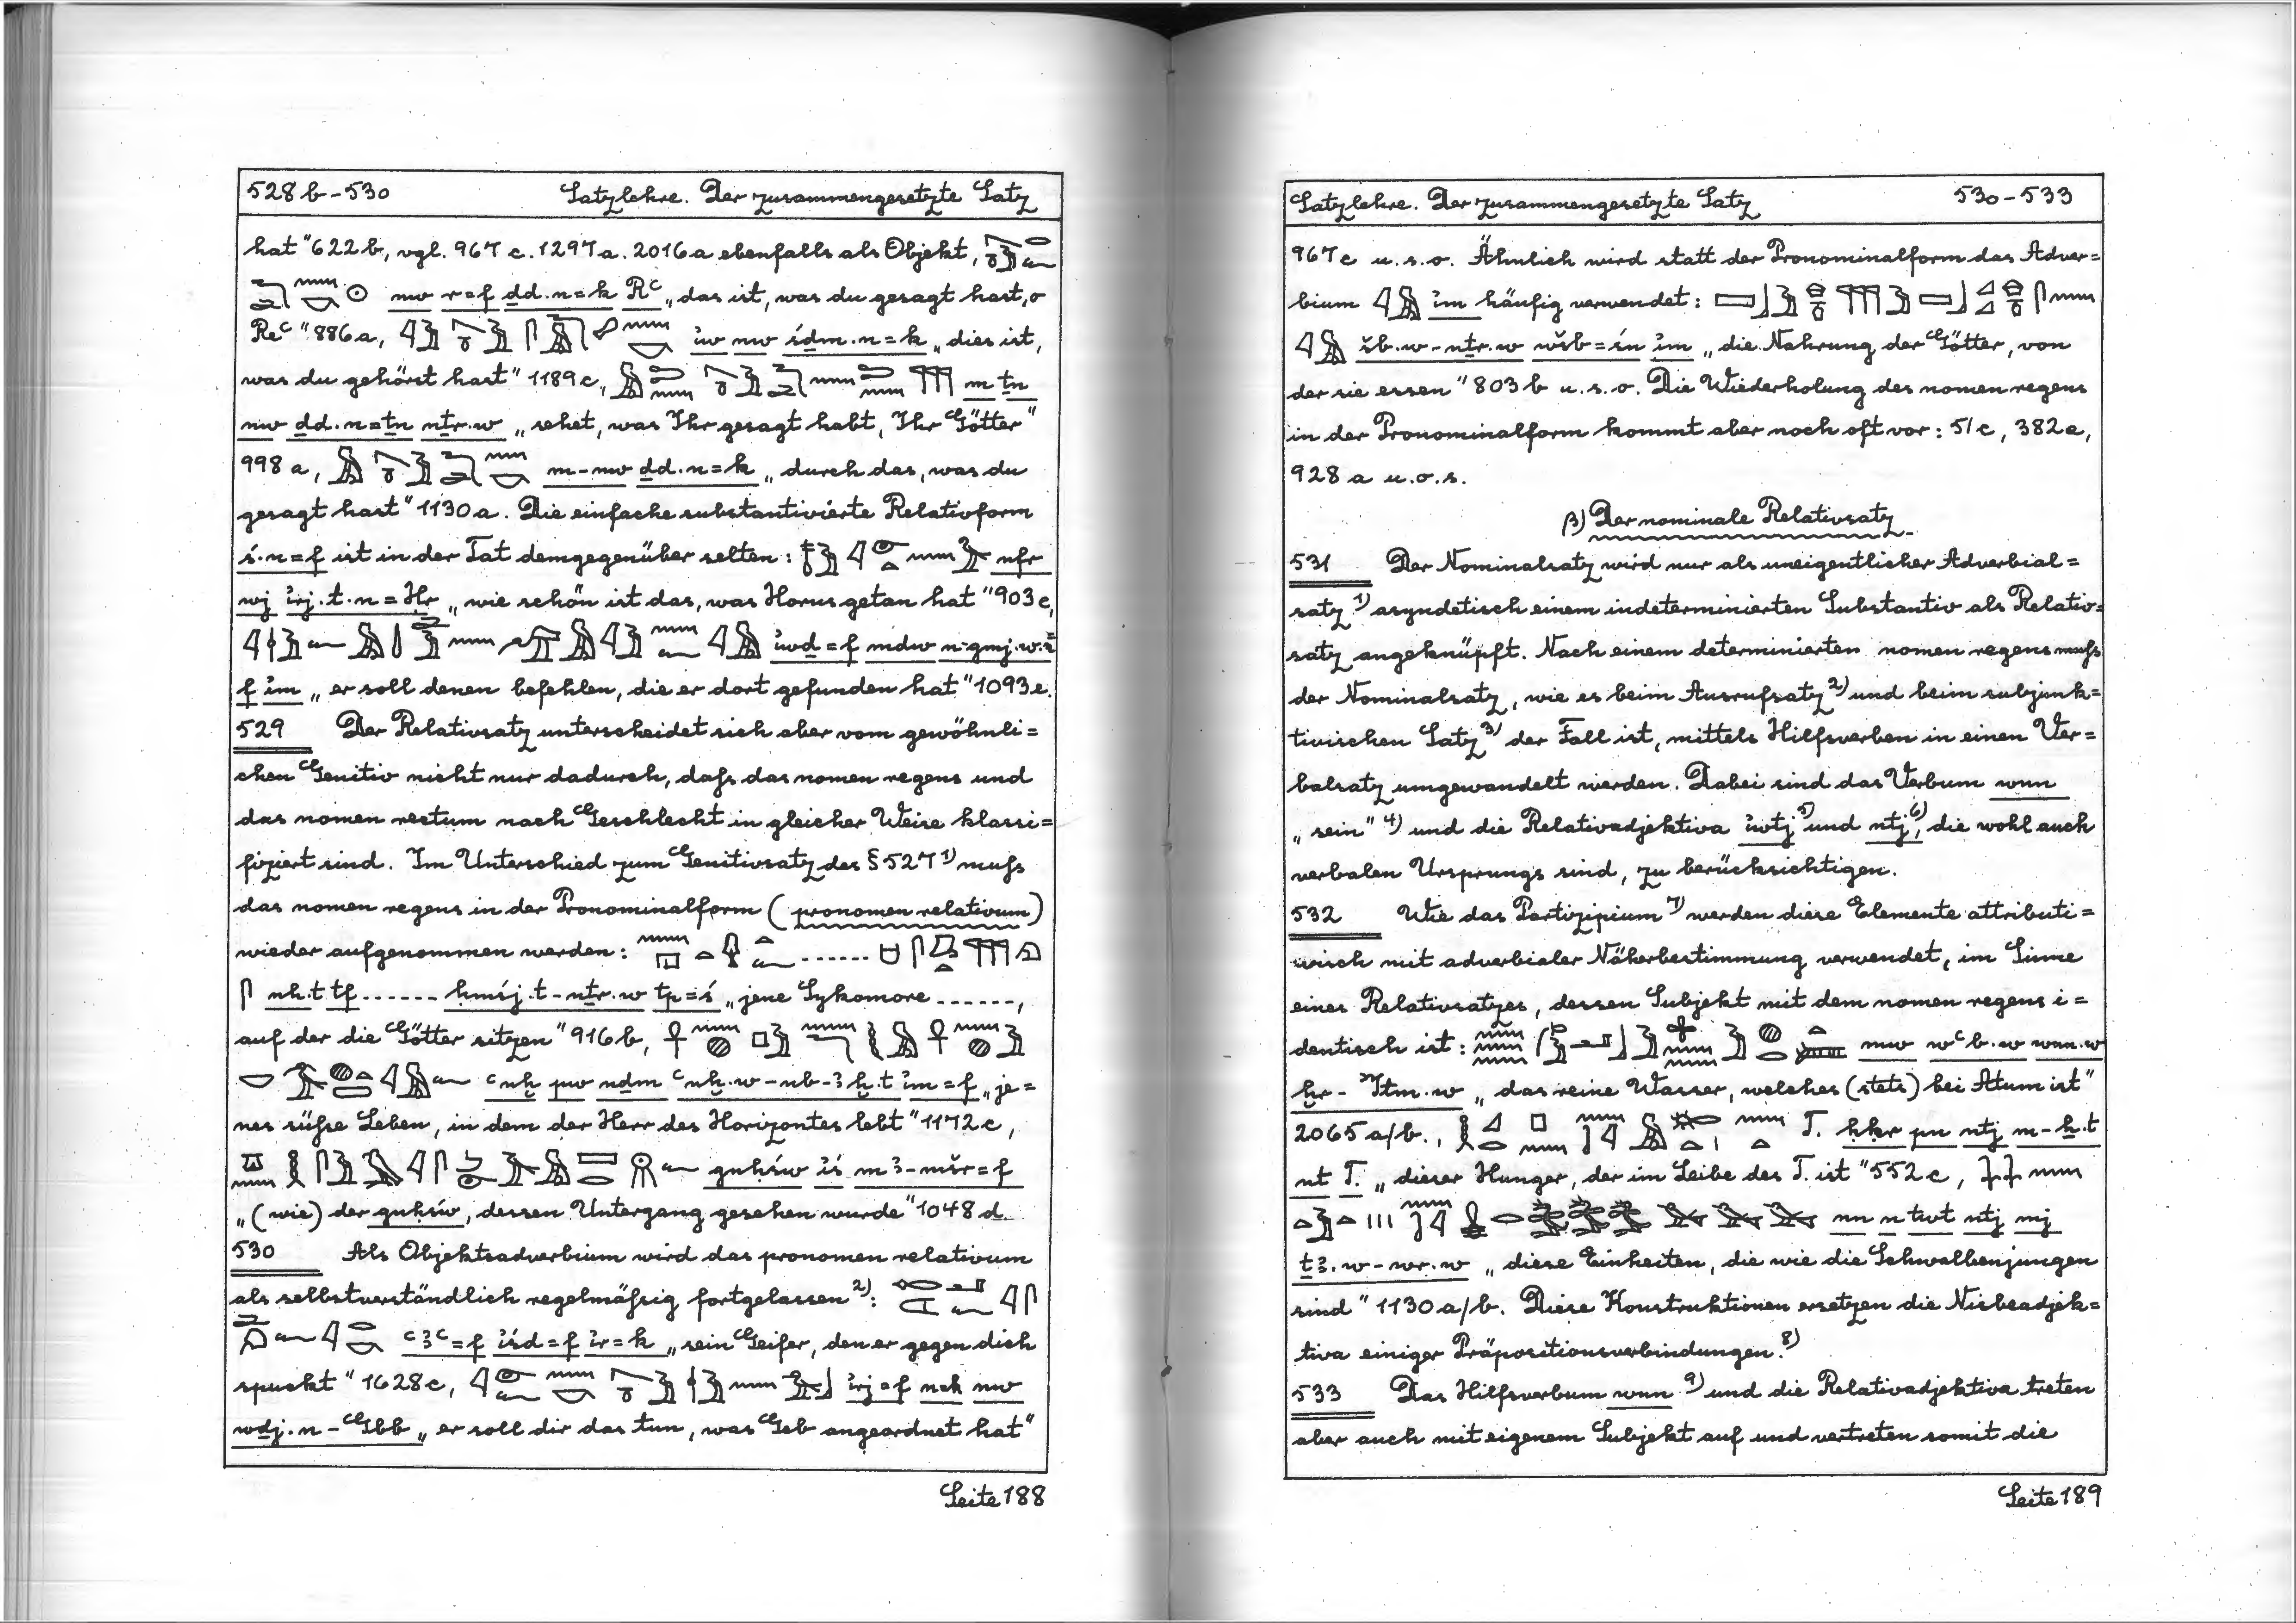 528b-530 Satzlehre. Der zusammengesetzte Satz
hat" 622b, vgl. 967c. 1297a. 2016a ebenfalls als Objekt,
nw r=f ḏd.n=k Rꜥ „das ist, was du gesagt hast, o
Reꜥ" 886a, ı͗w nw śḏm.n=k „dies ist,
was du gehörst hast" 1189c, m ṯn
nw ḏd.n=ṯn nṯr.w „sehet, was Ihr gesagt habt, Ihr Götter"
998a, m-nw ḏd.n=k „durch das, was du
gesagt hast" 1130a. Die einfache substantivierte Relativform
ś.n=f ist in der Tat demgegenüber selten: nfr
wj ı͗rj.t.n=Ḥr „wie schön ist das, was Horus getan hat" 903c,
ı͗wḏ=f mdw n-gmj.w.n=
f ı͗m „er soll denen befehlen, die er dort gefunden hat" 1093e.
529 Der Relativsatz unterscheidet sich aber vom gewöhnli=
chen Genitiv nicht nur dadurch, daß das nomen regens und
das nomen rectum nach Geschlecht in gleicher Weise klassi=
fiziert sind. Im Unterschied zum Genitivsatz des § 527 1) muß
das nomen regens in der Pronominalform (pronomen relativum)
wieder aufgenommen werden: ......
nh.t tf ...... ḥmśj.t-nṯr.w tp=ś „jene Sykomore ......,
auf der die Götter sitzen" 916b,
ꜥnḫ pw nḏm ꜥnḫ.w-nb-ꜣḫ.t ı͗m=f „je=
nes süße Leben, in dem der Herr des Horizontes lebt" 1172c,
gnḥśw ı͗ś mꜣ-mšr=f
„(wie) der gnḥśw, dessen Untergang gesehen wurde" 1048d.
530 Als Objektsadverbium wird das pronomen relativum
als selbstverständlich regelmäßig fortgelassen 2):
ꜥꜣꜥ=f ı͗śd=f ı͗r=k „sein Geifer, den er gegen dich
spuckt" 1628c, ı͗rj=f n=k nw
wḏj.n-Gbb „er soll dir das tun, was Geb angeordnet hat"
Seite 188
Satzlehre. Der zusammengesetzte Satz 530-533
967c u.s.o. Ähnlich wird statt der Pronominalform das Adver=
bium ı͗m häufig verwendet:
šb.w-nṯr.w wšb=śn ı͗m „die Nahrung der Götter, von
der sie essen" 803b u.s.o. Die Wiederholung des nomen regens
in der Pronominalform kommt aber noch oft vor: 51c, 382a,
928a u.o.s.
β) Der nominale Relativsatz
531 Der Nominalsatz wird nur als uneigentlicher Adverbial=
satz 1) asyndetisch einem indeterminierten Substantiv als Relativ=
satz angeknüpft. Nach einem determinierten nomen regens muß
der Nominalsatz, wie es beim Ausrufsatz 2) und beim subjunk=
tivischen Satz 3) der Fall ist, mittels Hilfsverben in einen Ver=
balsatz umgewandelt werden. Dabei sind das Verbum wnn
„sein" 4) und die Relativadjektiva ı͗wtj 5) und ntj 6), die wohl auch
verbalen Ursprungs sind, zu berücksichtigen.
532 Wie das Partizipium 7) werden diese Elemente attributi=
wisch mit adverbialer Näherbestimmung verwendet, im Sinne
eines Relativsatzes, dessen Subjekt mit dem nomen regens i=
dentisch ist: mw wꜥb.w wnn.w
ḫr-ꜣItm.w „das reine Wasser, welches (stets) bei Atum ist"
2065a/b., T. ḥḳr pn ntj m-ẖ.t
nt T. „dieser Hunger, der im Leibe des T. ist" 552c,
nn n twt ntj mj
ṯꜣ.w-wr.w „diese Einheiten, die wie die Schwalbenjungen
sind" 1130a/b. Diese Konstruktionen ersetzen die Nisbeadjek=
tiva einiger Präpositionsverbindungen. 8)
533 Das Hilfsverbum wnn 9) und die Relativadjektiva treten
aber auch mit eigenem Subjekt auf und vertreten somit die
Seite 189